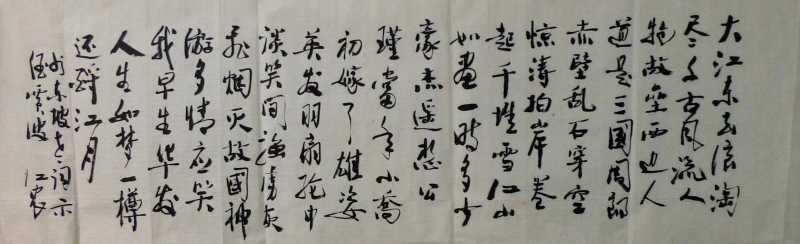 大江东去浪淘
尽千古风流人
物故垒西边人
道是三国周郎
赤壁乱石穿空
惊涛拍岸卷
起千堆雪江山
如画一时多少
豪杰遥想公
瑾当年小乔
初嫁了雄姿
英发羽扇纶巾
谈笑间强虏灰
飞烟灭故国神
游多情应笑
我早生华发
人生如梦一樽
还酹江月
东坡